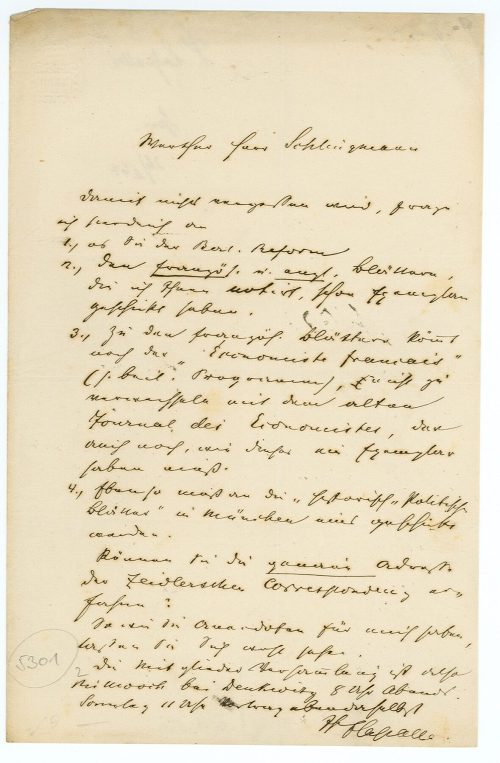 Werther Herr Schlingmann
Damit nicht vergessen wird, frage
ich hierdurch an
1., ob Sie der Berl. Reform
2., den französ. u. engl. Blättern,
die ich Ihnen notirt, schon Exemplare
geschickt haben.
3., Zu den französ. Blättern kömmt
noch der „Economiste français"
(s. beil. Programm), nicht zu
verwechseln mit dem alten
Journal des Economistes, der
auch noch, wie dieser ein Exemplar
haben muß.
4., Ebenso muß an die „historisch-politische
Blätter" in München eins geschickt
werden.
Können Sie die genaue Adresse
der Zeidlerschen Correspondenz er-
fahren?
Sowie Sie für mich haben,
lassen Sie Sich wohl sehen.
Die Mitglieder Versammlung ist
Mittwoch bei 8 Uhr Abends.
Sonntag 11 Uhr Vortrag ebenderselbst
FLassalle
5301